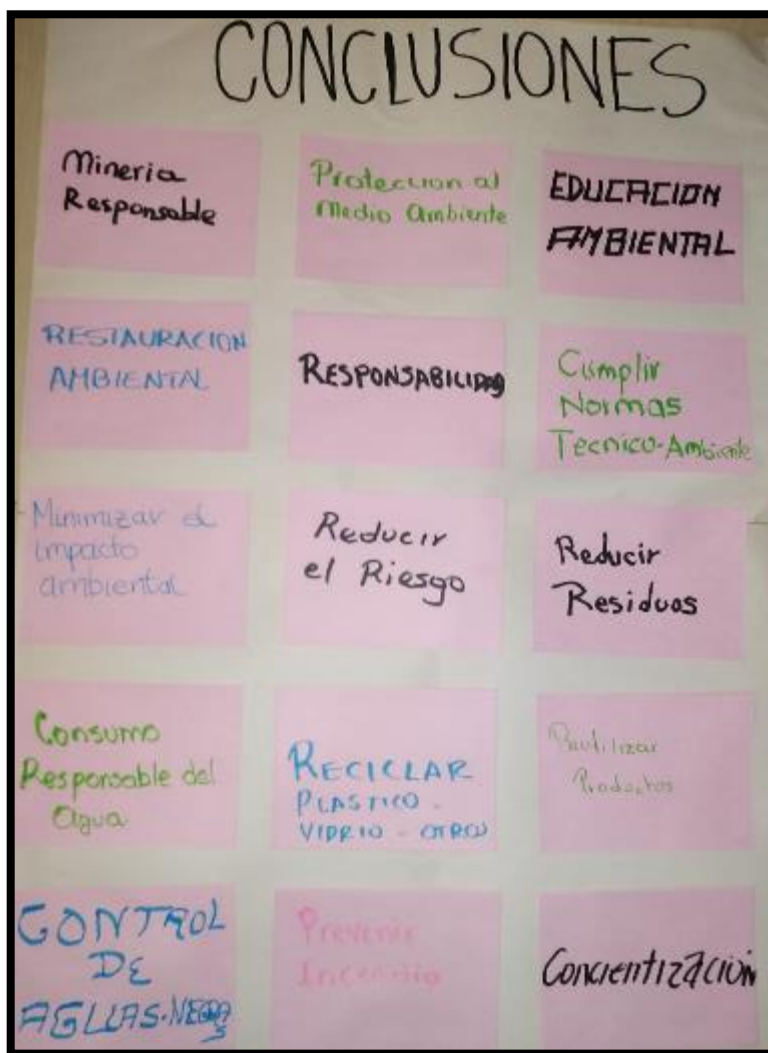 CONCLUSIONES
Mineria
Responsable
Proteccion al
Medio Ambiente
EDUCACION
AMBIENTAL
RESTAURACION
AMBIENTAL
RESPONSABILIDAD
Cumplir
Normas
Tecnico-Ambiente
Minimizar el
impacto
ambiental
Reducir
el Riesgo
Reducir
Residuos
Consumo
Responsable del
Agua
RECICLAR
PLASTICO -
VIDRIO - OTROS
Reutilizar
Productos
CONTROL
DE
AGUAS-NEGRAS
Prevenir
Incendio
Concientización